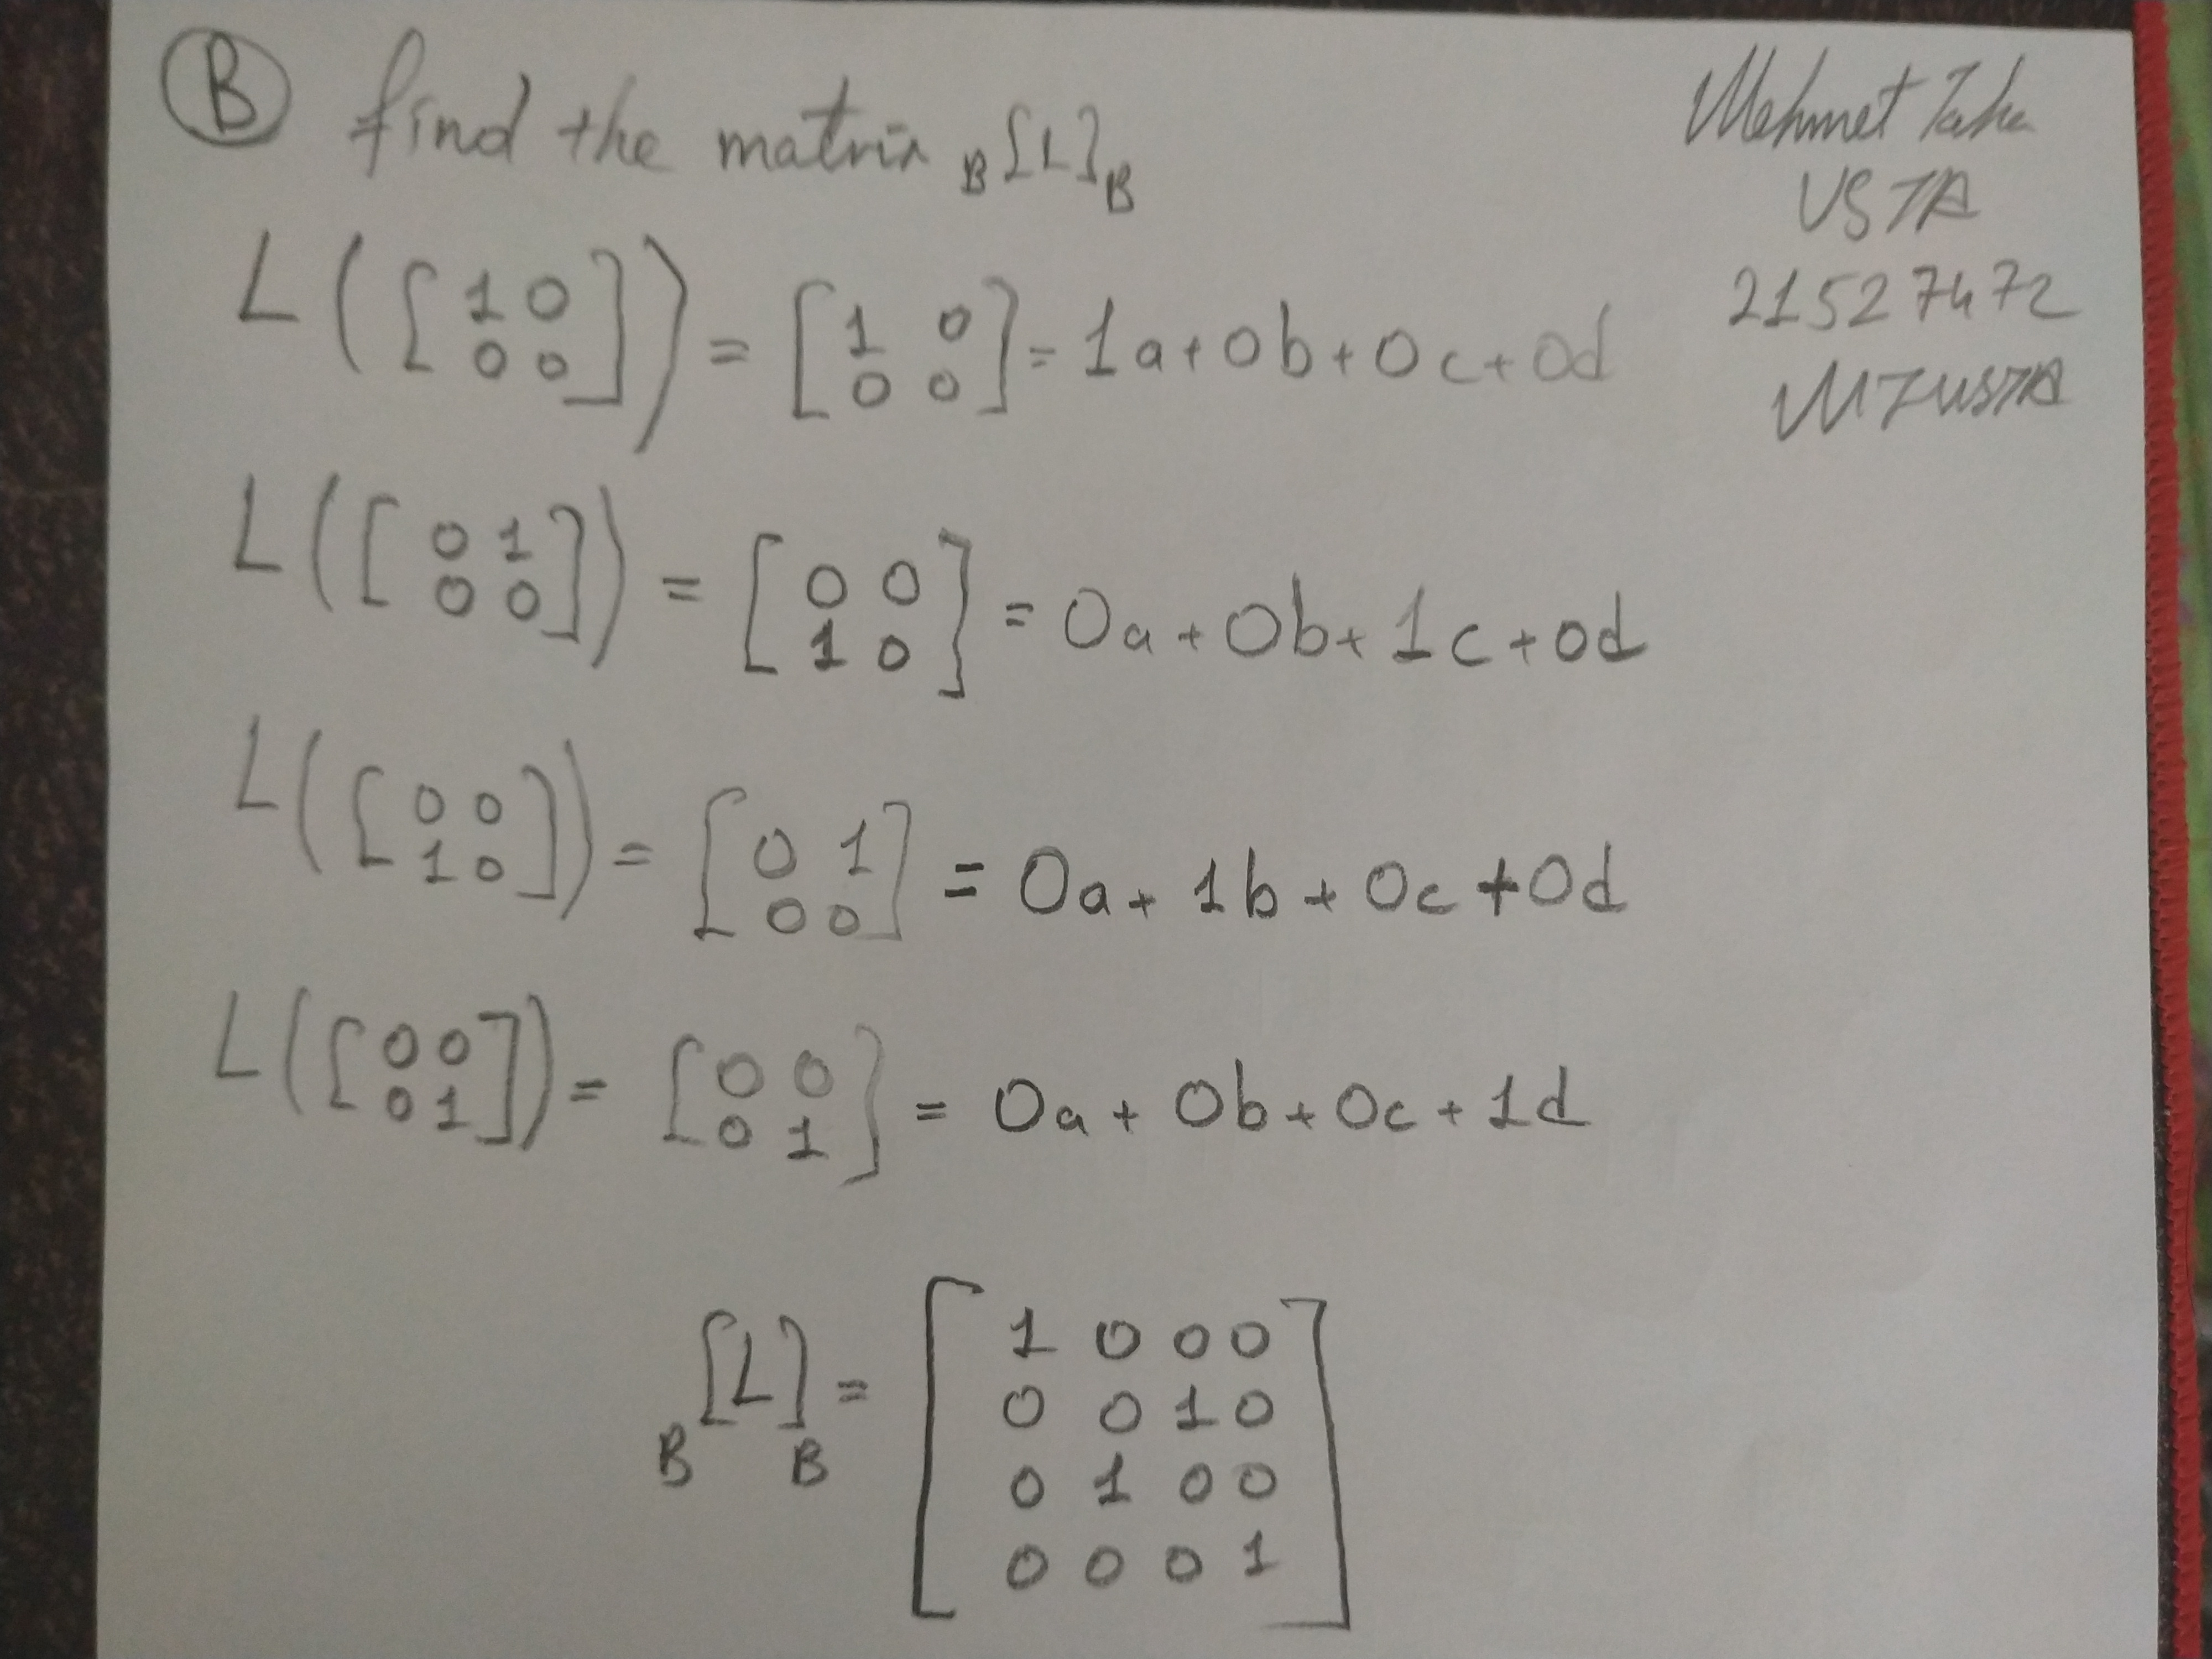 B find the matrix B[L]B
Mehmet Taha
USTA
21527472
MTUSTA
L([1 0
0 0]) = [1 0
0 0] = 1a + 0b + 0c + 0d
L([0 1
0 0]) = [0 0
1 0] = 0a + 0b + 1c + 0d
L([0 0
1 0]) = [0 1
0 0] = 0a + 1b + 0c + 0d
L([0 0
0 1]) = [0 0
0 1] = 0a + 0b + 0c + 1d
B[L]B = [1 0 0 0
0 0 1 0
0 1 0 0
0 0 0 1]